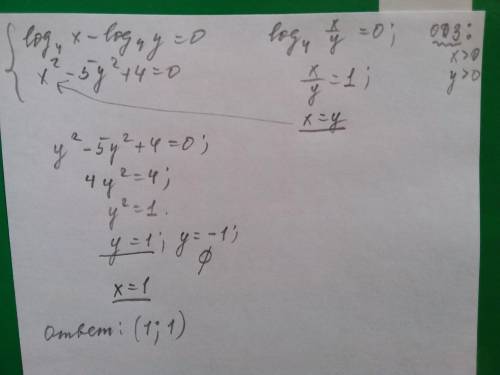 { log₄ x - log₄ y = 0
x² - 5y² + 4 = 0
log₄ x/y = 0;
x/y = 1;
x = y
ОДЗ:
x>0
y>0
y² - 5y² + 4 = 0;
4y² = 4;
y² = 1.
y = 1; y = -1;
∅
x = 1
Ответ: (1; 1)